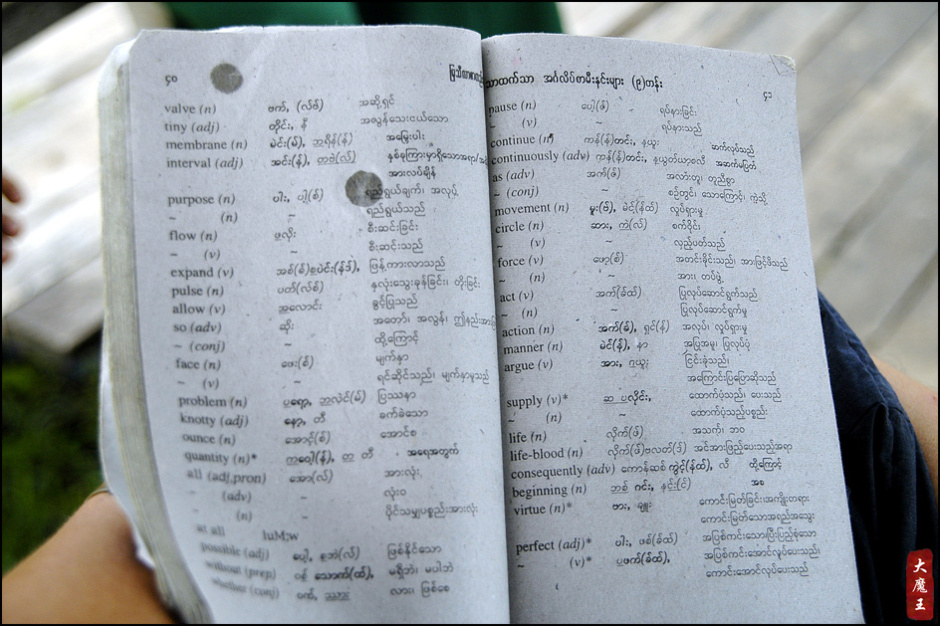 ၄၀
valve (n) ဗက်, (လ်ဗ်) အဆို့ရှင်
tiny (adj) တိုင်း, နီ အလွန်သေးငယ်သော
membrane (n) မဲင်း(မ်), ဘရိန်(န်) အမြှေးပါး
interval (adj) အင်း(န်), တဗဲ(လ်)
အားလပ်ချိန်
purpose (n) ပါး, ပါ့(စ်) ရည်ရွယ်ချက်၊ အလုပ်
~ (n) ~ ရည်ရွယ်သည်
flow (n) ဖလိုး စီးဆင်းခြင်း
~ (v) ~ စီးဆင်းသည်
expand (v) ဖြန့်ကားလာသည်
pulse (n) ပတ်(လ်စ်) နှလုံးသွေးခုန်ခြင်း၊ တိုးခြင်း
allow (v) အလောင်း ခွင့်ပြုသည်
so (adv) ဆိုး အတော်၊ အလွန်၊
~ (conj) ထို့ကြောင့်
face (n) ဖေး(စ်) မျက်နှာ
~ (v) ~ ရင်ဆိုင်သည်၊ မျက်နှာမူသည်
problem (n) ပြဿနာ
knotty (adj) နော့, တီ ခက်ခဲသော
ounce (n) အောင့်(စ်) အောင်စ
quantity (n)* အရေအတွက်
all (adj,pron) အော(လ်) အားလုံး
~ (adv) ~ လုံးဝ
~ (n) ~ ပိုင်သမျှပစ္စည်းအားလုံး
at all luM;w
possible (adj) ဖြစ်နိုင်သော
without (prep) မရှိဘဲ၊ မပါဘဲ
whether (conj) လား၊ ဖြစ်စေ
သာထက်သာ အင်္ဂလိပ်စာမီးနင်းများ (၉)တန်း
၄၁
pause (n) ပေါ့(ဇ်) ရပ်နားခြင်း
~ (v) ~ ရပ်နားသည်
continue (n) ကန်(န်)တင်း, နယူး ဆက်လုပ်သည်
continuously (adv) ကန်(န်)တင်း, နယူတ်ယာစလီ အဆက်မပြတ်
as (adv) အက်(ဇ်) အလားတူ၊ တူညီစွာ
~ (conj) ~ စဉ်တွင်၊ သောကြောင့်၊ ကဲ့သို့
movement (n) မူး(ဗ်), မဲင့်(န်ထ်) လှုပ်ရှားမှု
circle (n) ဆား, ကဲ(လ်) စက်ဝိုင်း
~ (v) ~ လှည့်ပတ်သည်
force (v) ဖော့(စ်) အတင်းခိုင်းသည်၊ အားဖြင့်ဖိသည်
~ (n) ~ အား၊ တပ်ဖွဲ့
act (v) အက်(ခ်ထ်) ပြုလုပ်ဆောင်ရွက်သည်
~ (n) ပြုလုပ်ဆောင်ရွက်မှု
action (n) အက်(ခ်), ရှင်(န်) အလုပ်၊ လှုပ်ရှားမှု
manner (n) မဲင်(န်), နာ အပြုအမူ၊ ပြုလုပ်ပုံ
argue (v) အား, ဂယူး ငြင်းခုံသည်၊
အကြောင်းပြပြောဆိုသည်
supply (v)* ဆ ပလိုင်း, ထောက်ပံ့သည်၊ ပေးသည်
~ (n) ~ ထောက်ပံ့သည့်ပစ္စည်း
life (n) လိုက်(ဖ်) အသက်၊ ဘဝ
life-blood (n) လိုက်(ဖ်)ဗလတ်(ဒ်) အင်အားဖြည့်ပေးသည့်အရာ
consequently (adv) ကောန်ဆစ် ကွင့်(န်ထ်), လီ ထို့ကြောင့်
beginning (n) ဘစ် ဂင်း, နင်း(င်) အစ
virtue (n)* ဗား, ချူး ကောင်းမြတ်ခြင်း၊အကျိုးတရား
ကောင်းမြတ်သောအရည်အသွေး
perfect (adj)* ပါး, ဖစ်(ခ်ထ်) အပြစ်ကင်းသော၊ပြီးပြည့်စုံသော
~ (v)* ပဖက်(ခ်ထ်), အပြစ်ကင်းအောင်လုပ်ပေးသည်၊
ကောင်းအောင်လုပ်ပေးသည်
大魔王